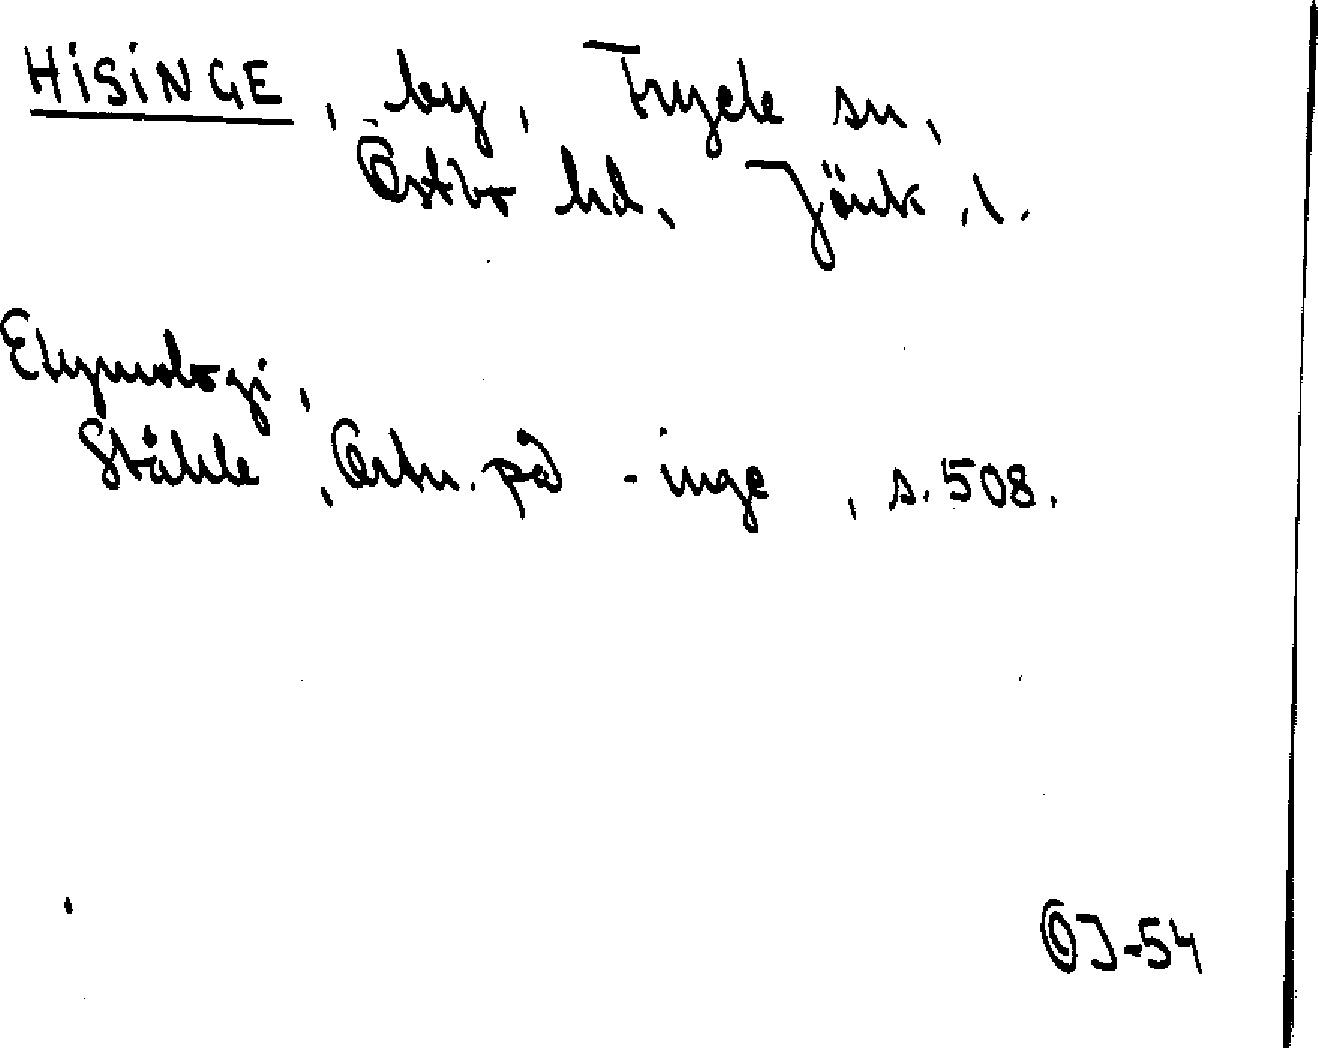 HISINGE, by, Fryele sn,
Östbo hd, Jönk. l.
Etymologi,
Ståhle, Ortn. på -inge, s. 508.
OJ-54